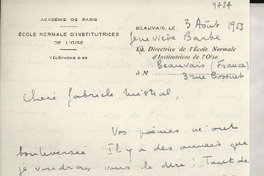 3434
ACADÉMIE DE PARIS
ÉCOLE NORMALE D'INSTITUTRICES
DE L'OISE
TÉLÉPHONE
BEAUVAIS, LE 3 Août 1953
Geneviève Barbe
La Directrice de l'École Normale
d'Institutrices de l'Oise
Beauvais (France)
À M
3 rue Bossuet
Chère Gabriele Mistral,
Vos poèmes m'ont
bouleversée. Il y a des années que
je voudrais vous le dire ! Tout de